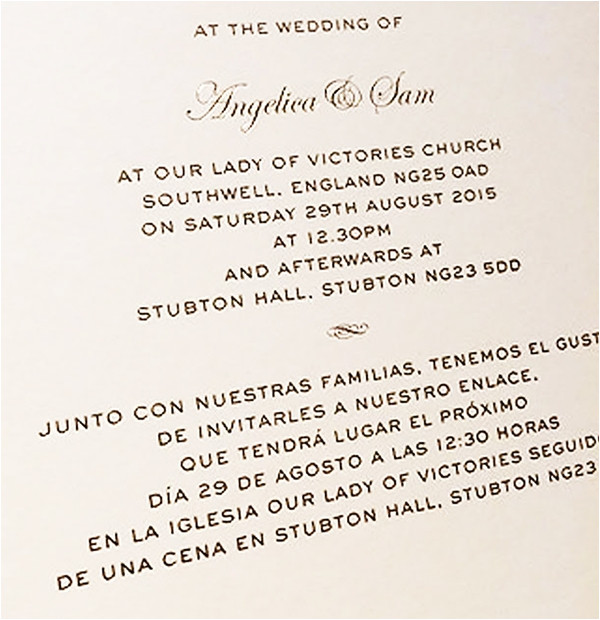 AT THE WEDDING OF
Angelica & Sam
AT OUR LADY OF VICTORIES CHURCH
SOUTHWELL, ENGLAND NG25 0AD
ON SATURDAY 29TH AUGUST 2015
AT 12.30PM
AND AFTERWARDS AT
STUBTON HALL, STUBTON NG23 5DD
JUNTO CON NUESTRAS FAMILIAS, TENEMOS EL GUST
DE INVITARLES A NUESTRO ENLACE,
QUE TENDRÁ LUGAR EL PRÓXIMO
DÍA 29 DE AGOSTO A LAS 12:30 HORAS
EN LA IGLESIA OUR LADY OF VICTORIES SEGUID
DE UNA CENA EN STUBTON HALL, STUBTON NG23